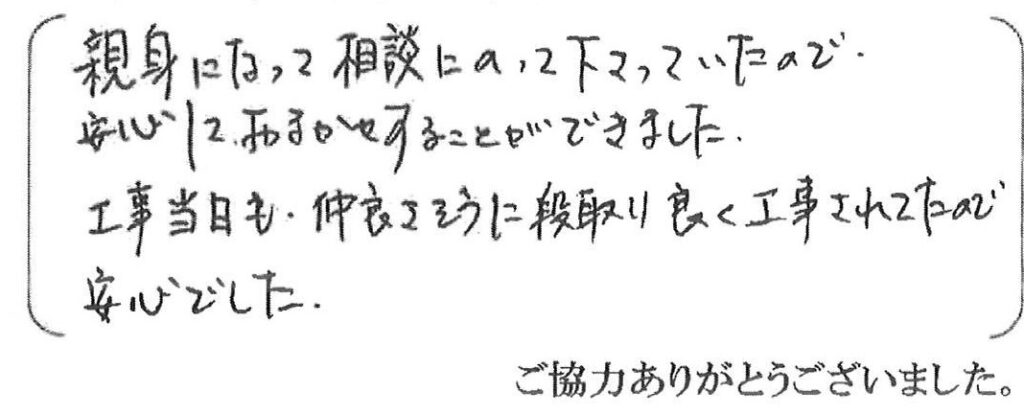 親身になって相談にのって下さっていたので、
安心しておまかせすることができました。
工事当日も、仲良さそうに段取り良く工事されてたので
安心でした。
ご協力ありがとうございました。